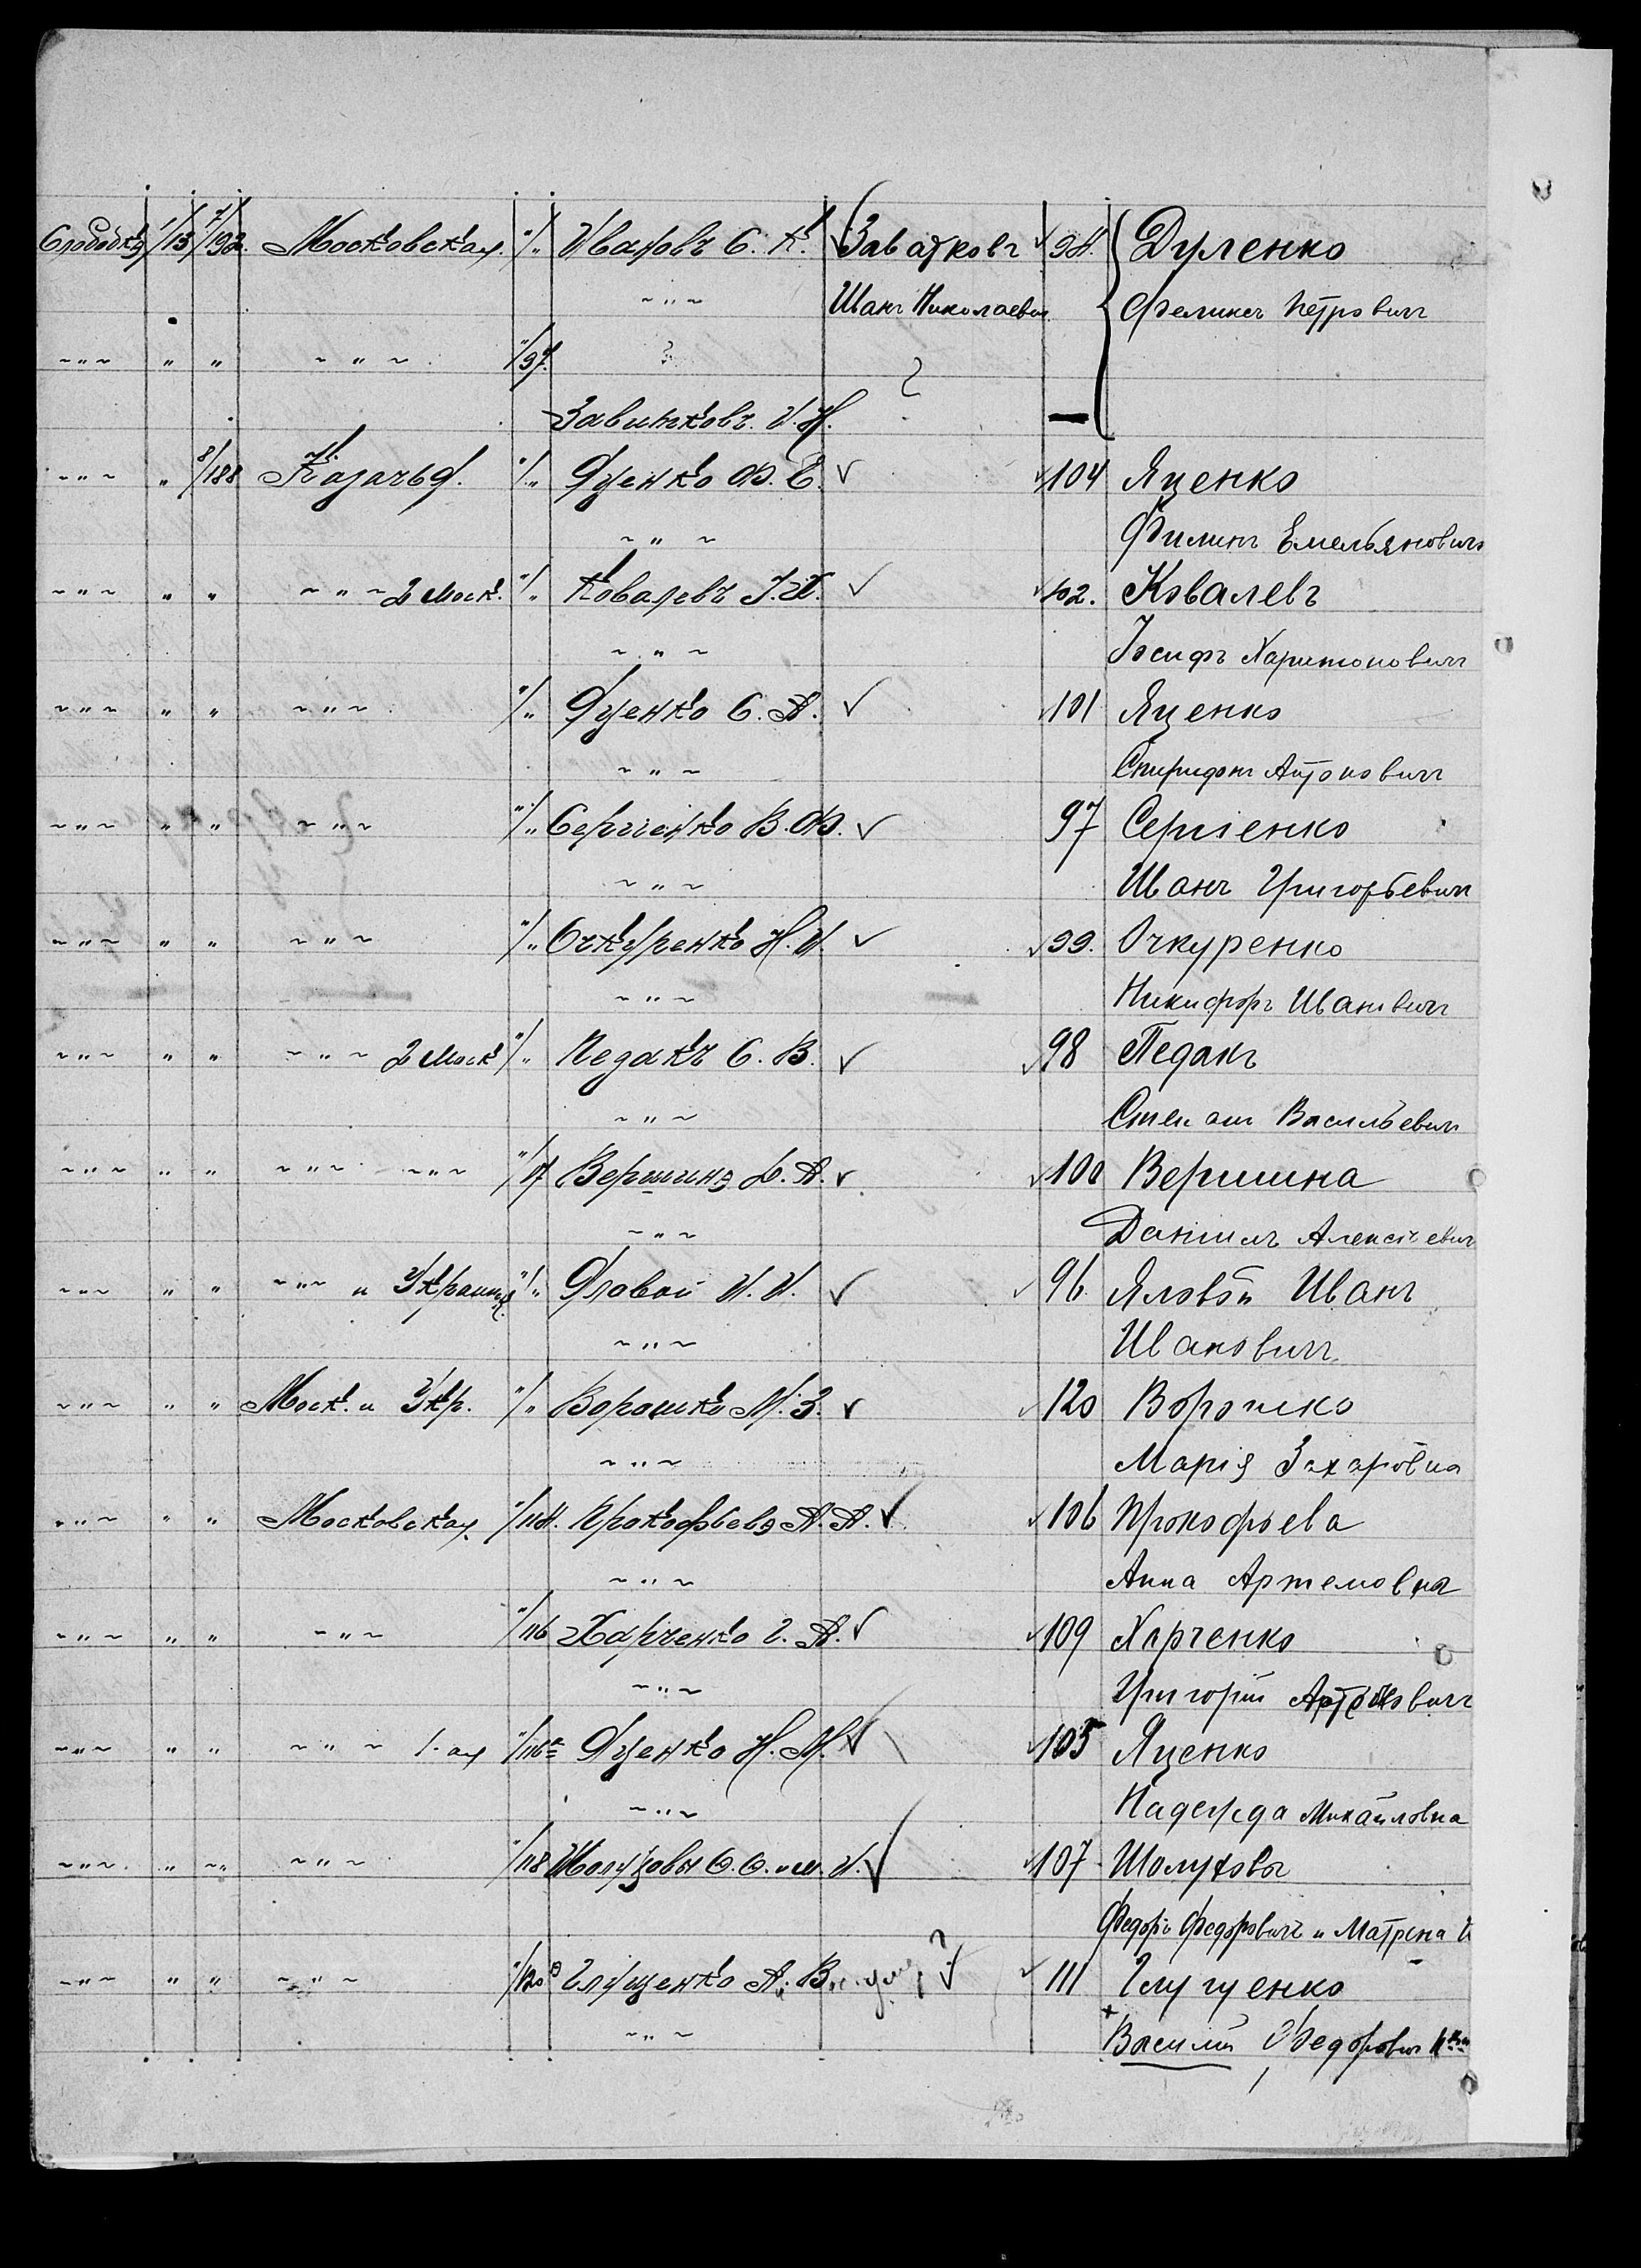 Слободка 1/13 7/192 Московская "/" Ивановъ С. К. Заватковъ 94. Дуленко
~"~ Иванъ Николаевич Феликсъ Петровичъ
~"~ " " ~"~ "/97. ? ?
Завитковъ И. Н. —
~"~ " 8/188 Казачья. "/" Яценко Ф. Е. ✓ ✓104 Яценко
~"~ Филипъ Емельяновичъ
~"~ " " ~"~ 2 Моск. "/" Ковалевъ І. Х. ✓ ✓102. Ковалевъ
~"~ Іосифъ Харитоновичъ
~"~ " " ~"~ "/" Яценко С. А. ✓ ✓101 Яценко
~"~ Спиридонъ Антоновичъ
~"~ " " ~"~ "/" Сергіенко В. Ф. ✓ 97 Сергіенко
~"~ Иванъ Григорьевичъ
~"~ " " ~"~ "/" Очкуренко Н. И. ✓ ✓99. Очкуренко
~"~ Никифоръ Ивановичъ
~"~ " " ~"~ 2 Моск "/" Педакъ С. В. ✓ ✓98 Педакъ
~"~ Степанъ Васильевичъ
~"~ " " ~"~ ~"~ "/17 Вершина Д. А. ✓ ✓100 Вершина
~"~ Даніилъ Алексѣевичъ
~"~ " " ~"~ и Украинск. "/" Яловой И. И. ✓ ✓96. Яловой Иванъ
~"~ Ивановичъ
~"~ " " Моск. и Укр. "/" Ворошко М. З. ✓ ✓120 Ворошко
~"~ Марія Захаровна
~"~ " " Московская "/114. Прокофьева А. А. ✓ ✓106 Прокофьева
~"~ Анна Артемовна
~"~ " " ~"~ "/116 Харченко Г. А. ✓ ✓109 Харченко
~"~ Григорій
~"~ " " ~"~ 1-ая "/116а Яценко Н. М. ✓ ✓105 Яценко
~"~ Надежда Михайловна
~"~ " ~" ~"~ "/118 Шолуховы Ф. Ф. и М. И. ✓ ✓107 Шолуховы
Федоръ Федоровичъ и Матрена И
~"~ " " ~"~ "/120 Глущенко А. В. ? ✓ ✓111 Глущенко
~"~ + Василій Федорович